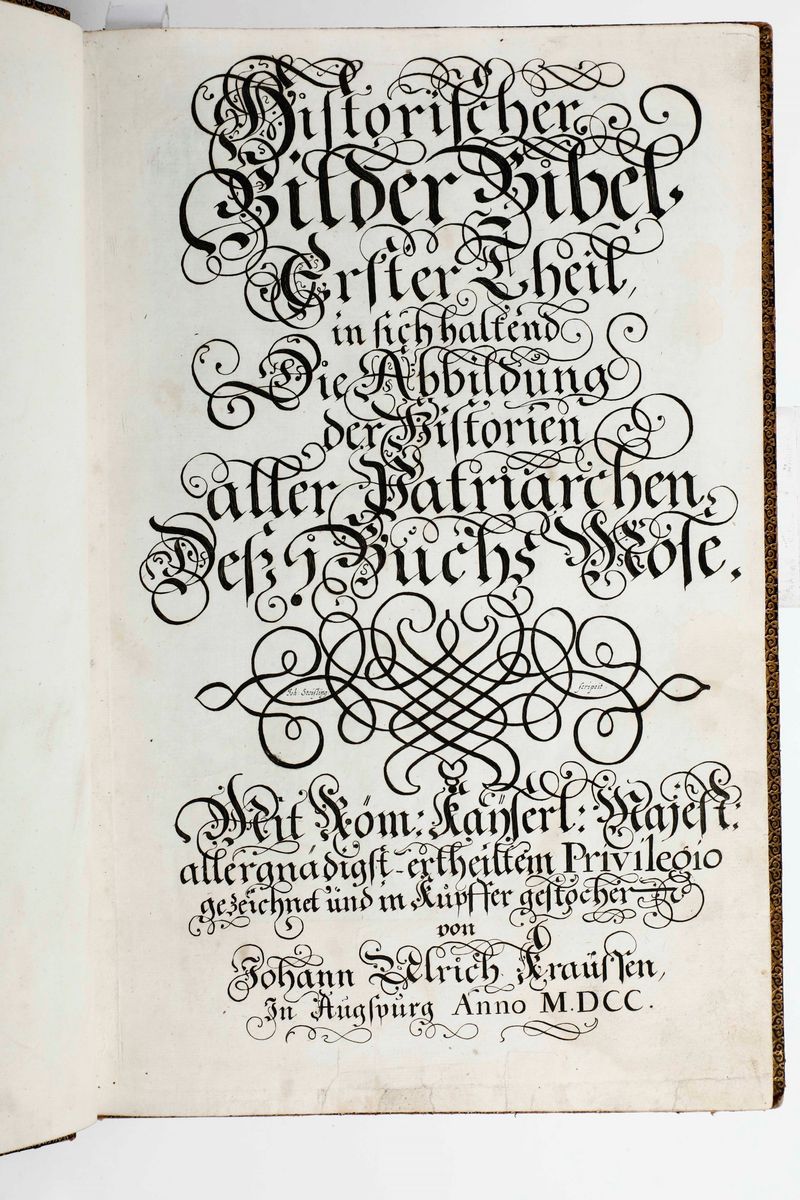 Historischer
Bilder Bibel
Erster Theil,
in sich haltend
Die Abbildung
der Historien
aller Patriarchen,
Deß 1 Buchs Mose.
scripsit
Mit Röm: Kaÿserl: Majest:
allergnädigst-ertheiltem Privilegio
gezeichnet und in Kupffer gestochen
von
Johann Ulrich Kraussen,
In Augspurg Anno M.DCC.